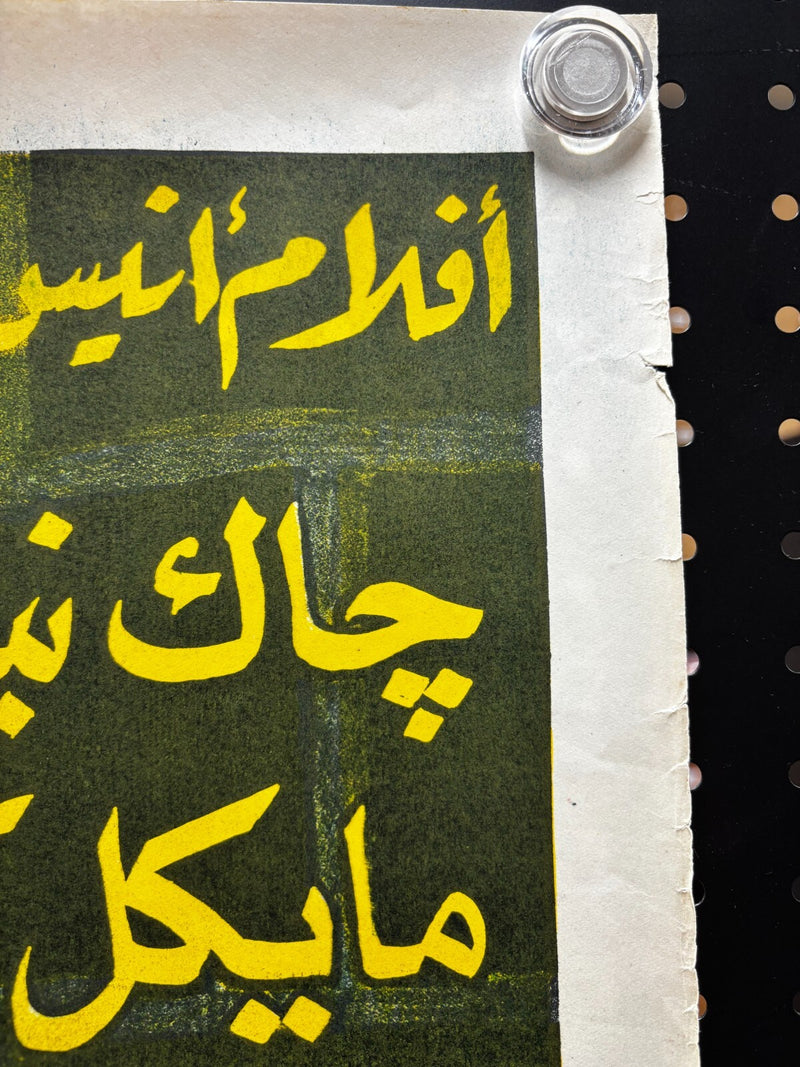 أفلام أنيس
چاك
مايكل